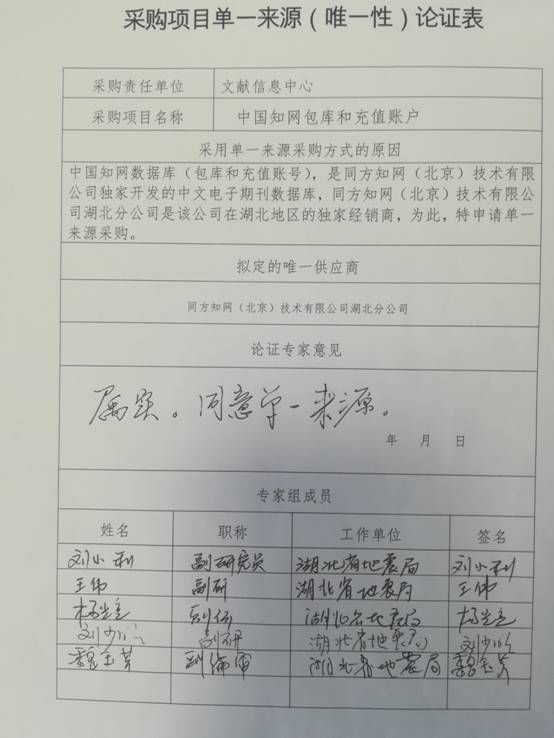 采购项目单一来源（唯一性）论证表
采购责任单位 文献信息中心
采购项目名称 中国知网包库和充值账户
采用单一来源采购方式的原因
中国知网数据库（包库和充值账号），是同方知网（北京）技术有限
公司独家开发的中文电子期刊数据库，同方知网（北京）技术有限公
司湖北分公司是该公司在湖北地区的独家经销商，为此，特申请单一
来源采购。
拟定的唯一供应商
同方知网（北京）技术有限公司湖北分公司
论证专家意见
属实。同意单一来源。
年 月 日
专家组成员
姓名 职称 工作单位 签名
刘小利 副研究员 湖北省地震局 刘小利
王伟 副研 湖北省地震局 王伟
杨 湖北省地震局 杨
刘少 副研 湖北省地震局 刘少
副编审 湖北省地震局